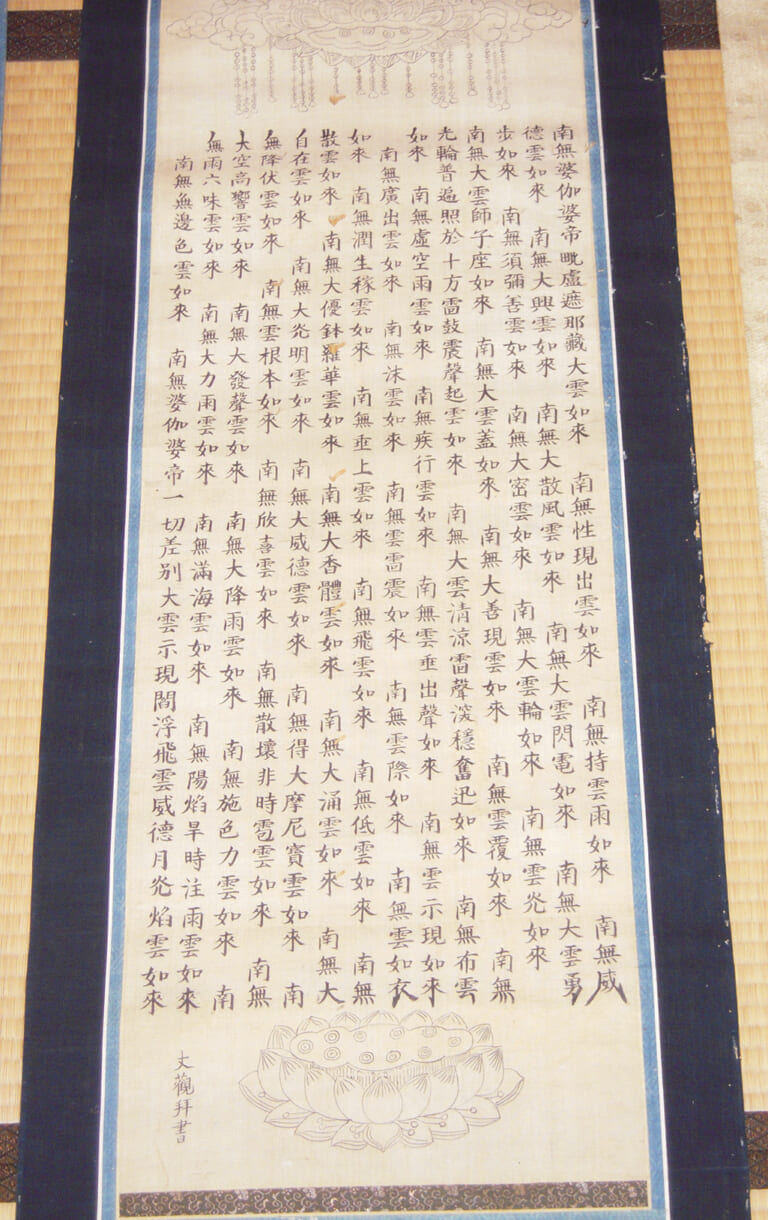 南無婆伽婆帝毗盧遮那藏大雲如來 南無性現出雲如來 南無持雲雨如來 南無威
德雲如來 南無大興雲如來 南無大散風雲如來 南無大雲閃電如來 南無大雲勇
步如來 南無須彌善雲如來 南無大密雲如來 南無大雲輪如來 南無雲光如來
南無大雲師子座如來 南無大雲蓋如來 南無大善現雲如來 南無雲覆如來 南無
光輪普遍照於十方雷鼓震聲起雲如來 南無大雲清涼雷聲深穩奮迅如來 南無布雲
如來 南無虛空雨雲如來 南無疾行雲如來 南無雲垂出聲如來 南無雲示現如來
南無廣出雲如來 南無沫雲如來 南無雲雷震如來 南無雲際如來 南無雲如衣
如來 南無潤生稼雲如來 南無垂上雲如來 南無飛雲如來 南無低雲如來 南無
散雲如來 南無大優鉢羅華雲如來 南無大香體雲如來 南無大涌雲如來 南無大
自在雲如來 南無大光明雲如來 南無大威德雲如來 南無得大摩尼寶雲如來 南
無降伏雲如來 南無雲根本如來 南無欣喜雲如來 南無散壞非時雹雲如來 南無
大空高響雲如來 南無大發聲雲如來 南無大降雨雲如來 南無施色力雲如來 南
無雨六味雲如來 南無大力雨雲如來 南無滿海雲如來 南無陽焰旱時注雨雲如來
南無無邊色雲如來 南無婆伽婆帝一切差別大雲示現閻浮飛雲威德月光焰雲如來
文觀拜書